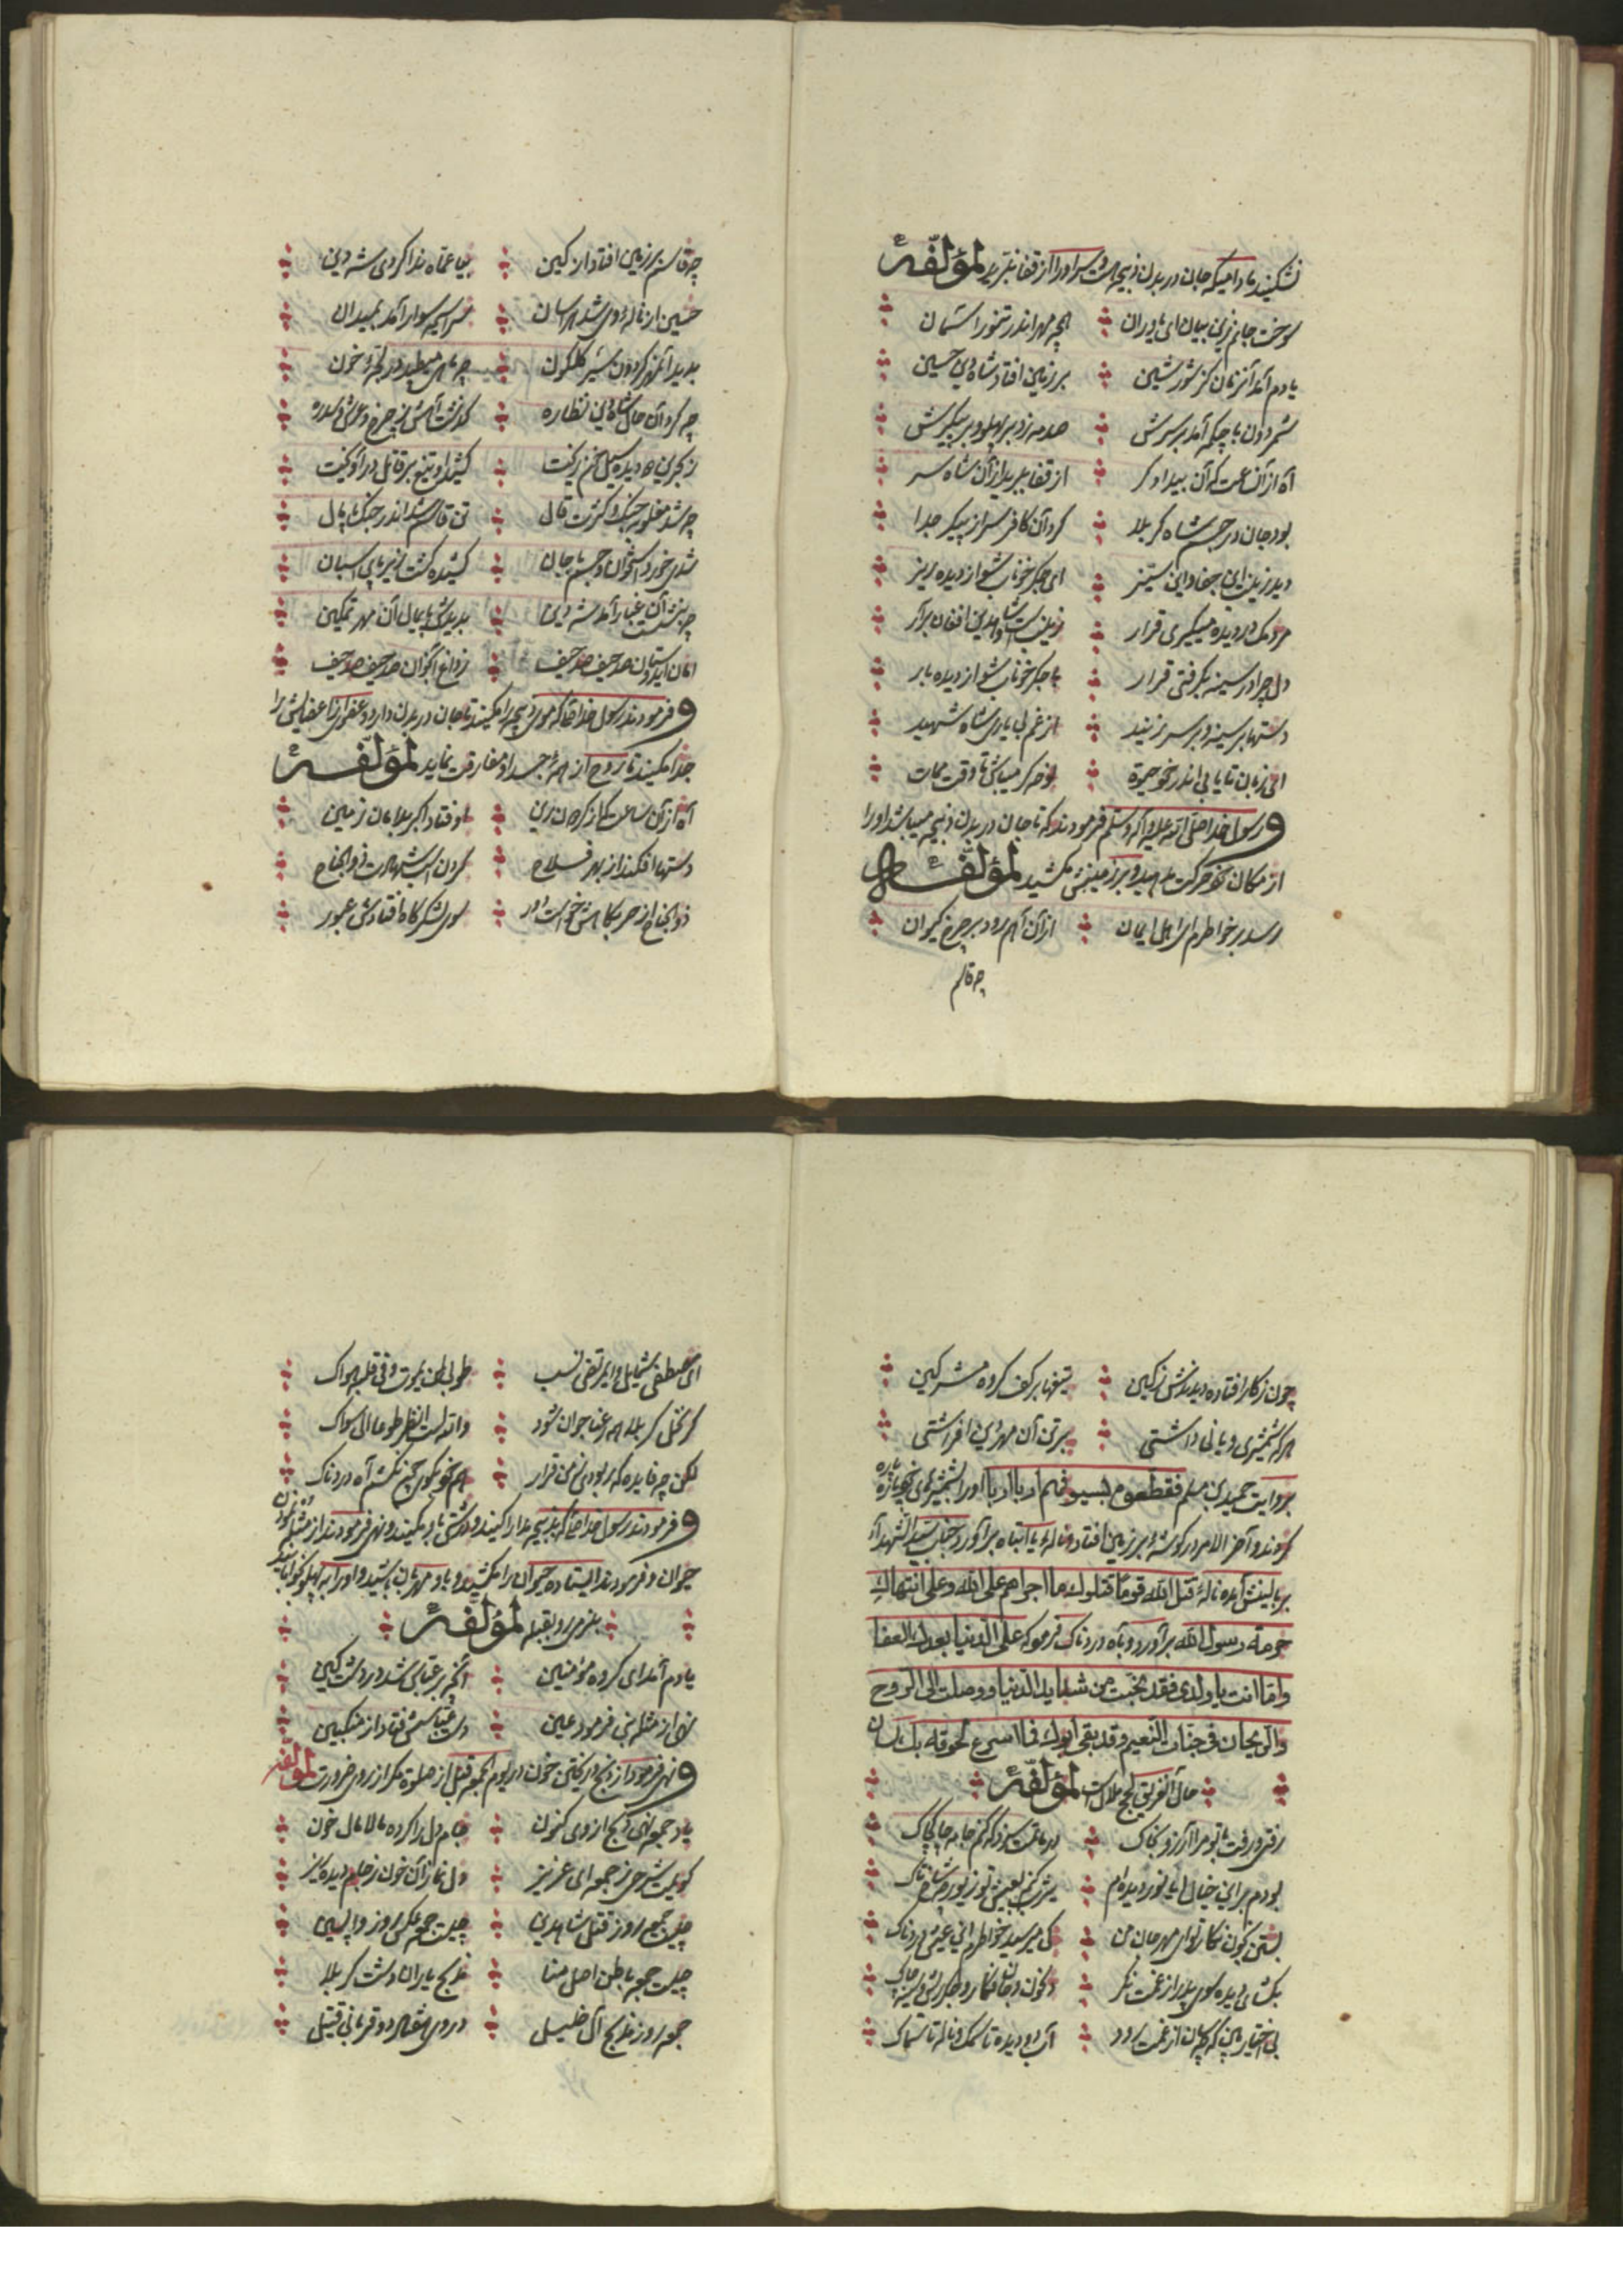 نشکنید مادامیکه جان در بدن ذبیحه است و سر او را از قفا نبرید لمؤلفه
سوخت جانم زین بیان ای یاوران همچه مهر اندر تنور آسمان
یادم آمد آنزمان کز شور شین بر زمین افتاد شاه دین حسین
شمر دون با چکمه آمد بر سرش صدمه زد بر پهلو و بر پیکرش
آه از آن ساعت که آن بیدادگر از قفا ببرید از آن شاه سر
بود جان در جسم شاه کربلا کرد آن کافر سر از پیکر جدا
دید زینب این جفا و این ستیز ای جگر خوناب شو از دیده ریز
مردمک در دیده میگیری قرار زینب است افغان برآر
دل چرا در سینه بگرفتی قرار با جگر خوناب شو از دیده بار
دستها بر سینه و بر سر زنید از غم بی یاری شاه شهید
ای زبان تا یابی اندر خود حیوة نوحه گر میباش تا وقت ممات
و رسول خدا صلی الله علیه و آله و سلم فرمودند که تا جان در بدن ذبیحه میباشد او را
از مکان خود حرکت مدهید و بر زمینش مکشید لمؤلفه
رسد بر خاطرم ای اهل ایمان از آن آهم رود بر چرخ کیوان
چه قاسم
چه قاسم بر زمین افتاد از کین بیا عماه ندا کردی شه دین
حسین از ناله وی شد هراسان سراسیمه سوار آمد بمیدان
بدید آنمهر گردون شیر گلگون چه ماهی میطپد در لجه خون
چه کرد آن حال شاه دین نظاره گذشت آهش ز چرخ و عرش و
ز بحرین دو دیده سیل خون ریخت کشید او تیغ بر قاتل درآویخت
چه شد مغلوبه جنگ و کثرت قال تن قاسم شد اندر جنگ پامال
شدی خورد استخوان و جسم بی جان کشیده گشت زیر پای اسبان
چه بنشست آن غبار آمد شه دین بدیدش پایمال آن مهر تمکین
امان ایدوستان صد حیف صد حیف ز داغ اکبر آن صد حیف صد حیف
و فرمودند رسول خدا که موی ذبیحه را مکنید تا جان در بدن دارد و عضوی از اعضایش را
جدا مکنید تا روح از همه جسد او مفارقت نماید لمؤلفه
آه از آن ساعت که از کرصان زین اوفتاد اکبر بلا مان زمین
دستها افکند از بهر فلاح گردن اسب شهادت ذوالجناح
ذوالجناح از حربگاهش خواست در سوی لشکرگاه افتادش عبور
چون ز کار افتاده دیدندش ز کین تیغها بر کف گروه مشرکین
هر که شمشیری و یا نی داشتی بر تن آن مهر دین افراشتی
بروایت حمید بن مسلم فقطعوه بسیوفهم اربا اربا او را بشمشیرهای خود پاره پاره
کردند و آخر الامر در گوشه بر زمین افتاد و ناله یا ابتاه برآورد و جناب سید الشهدا
ببالینش آمده ناله قتل الله قوما قتلوك ما اجراهم على الله وعلى انتهاك
حرمة رسول الله برآورد و با آه دردناک فرمود که على الدنيا بعدك العفا
واما انت يا ولدى فقد نجيت من شدايد الدنيا ووصلت الى الروح
والريحان فى جنات النعيم وقد بقى ابوك فما اسرع لحوقه بك
حال آنغریق لجه ملال است لمؤلفه
رفتی و رفت با تو مرا آرزو بخاک در ماتمت سزد که کنم جامه چاکچاک
بودم بر این خیال ایا نور دیده ام
بستن کنون نگار تو ای مهر جان من کی میرسد بخاطرم این عیش دردناک
بگشای دیده سوی پدر از غمت نگر
بی اختیار بین که چه سان از غمت رود آب دو دیده تا سمک و ناله تا سماک
ای مصطفی شمایل و ای مرتضی نسب طوبی لمن یموت و فی قلبه هواک
گر نخل کربلا همه رعنا جوان شود والله لست انظر طوعا الی سواک
لکن چه فایده که ربودی ز من قرار هم خود نکوی چون نکشم آه دردناک
و فرمودند رسول خدا که بذبیحه مدارا کنید و درشتی باو مکنید و نهی فرمودند از مثله نمودن
حیوان و فرمودند ایستاده حیوان را مکشید و باو مهربان باشید و او را بپهلو بخوابانید
رو بقبله لمؤلفه
یادم آمد ای گروه مؤمنین آنچه بر عباس شد در دشت کین
نهی از مثله نبی فرمود عین دست عباسش فتاد از منکبین
و نهی فرمود از ذبح و ریختن خون در یوم الجمعه قبل از صلوة مگر از روی ضرورت لمؤلفه
یاد جمعه نهی ذبح از وی کنون جام دل را کرده مالامال خون
گویمت شرحی ز جمعه ای عزیز ولی نما زان خون ز جام دیده ریز
چیست جمعه روز قتل شاه دین چیست جمعه روز واپسین
چیست جمعه باطن اصل منا مذبح یاران دشت کربلا
جمعه روز مذبح آل خلیل در وی هفتاد و دو قربانی قتیل